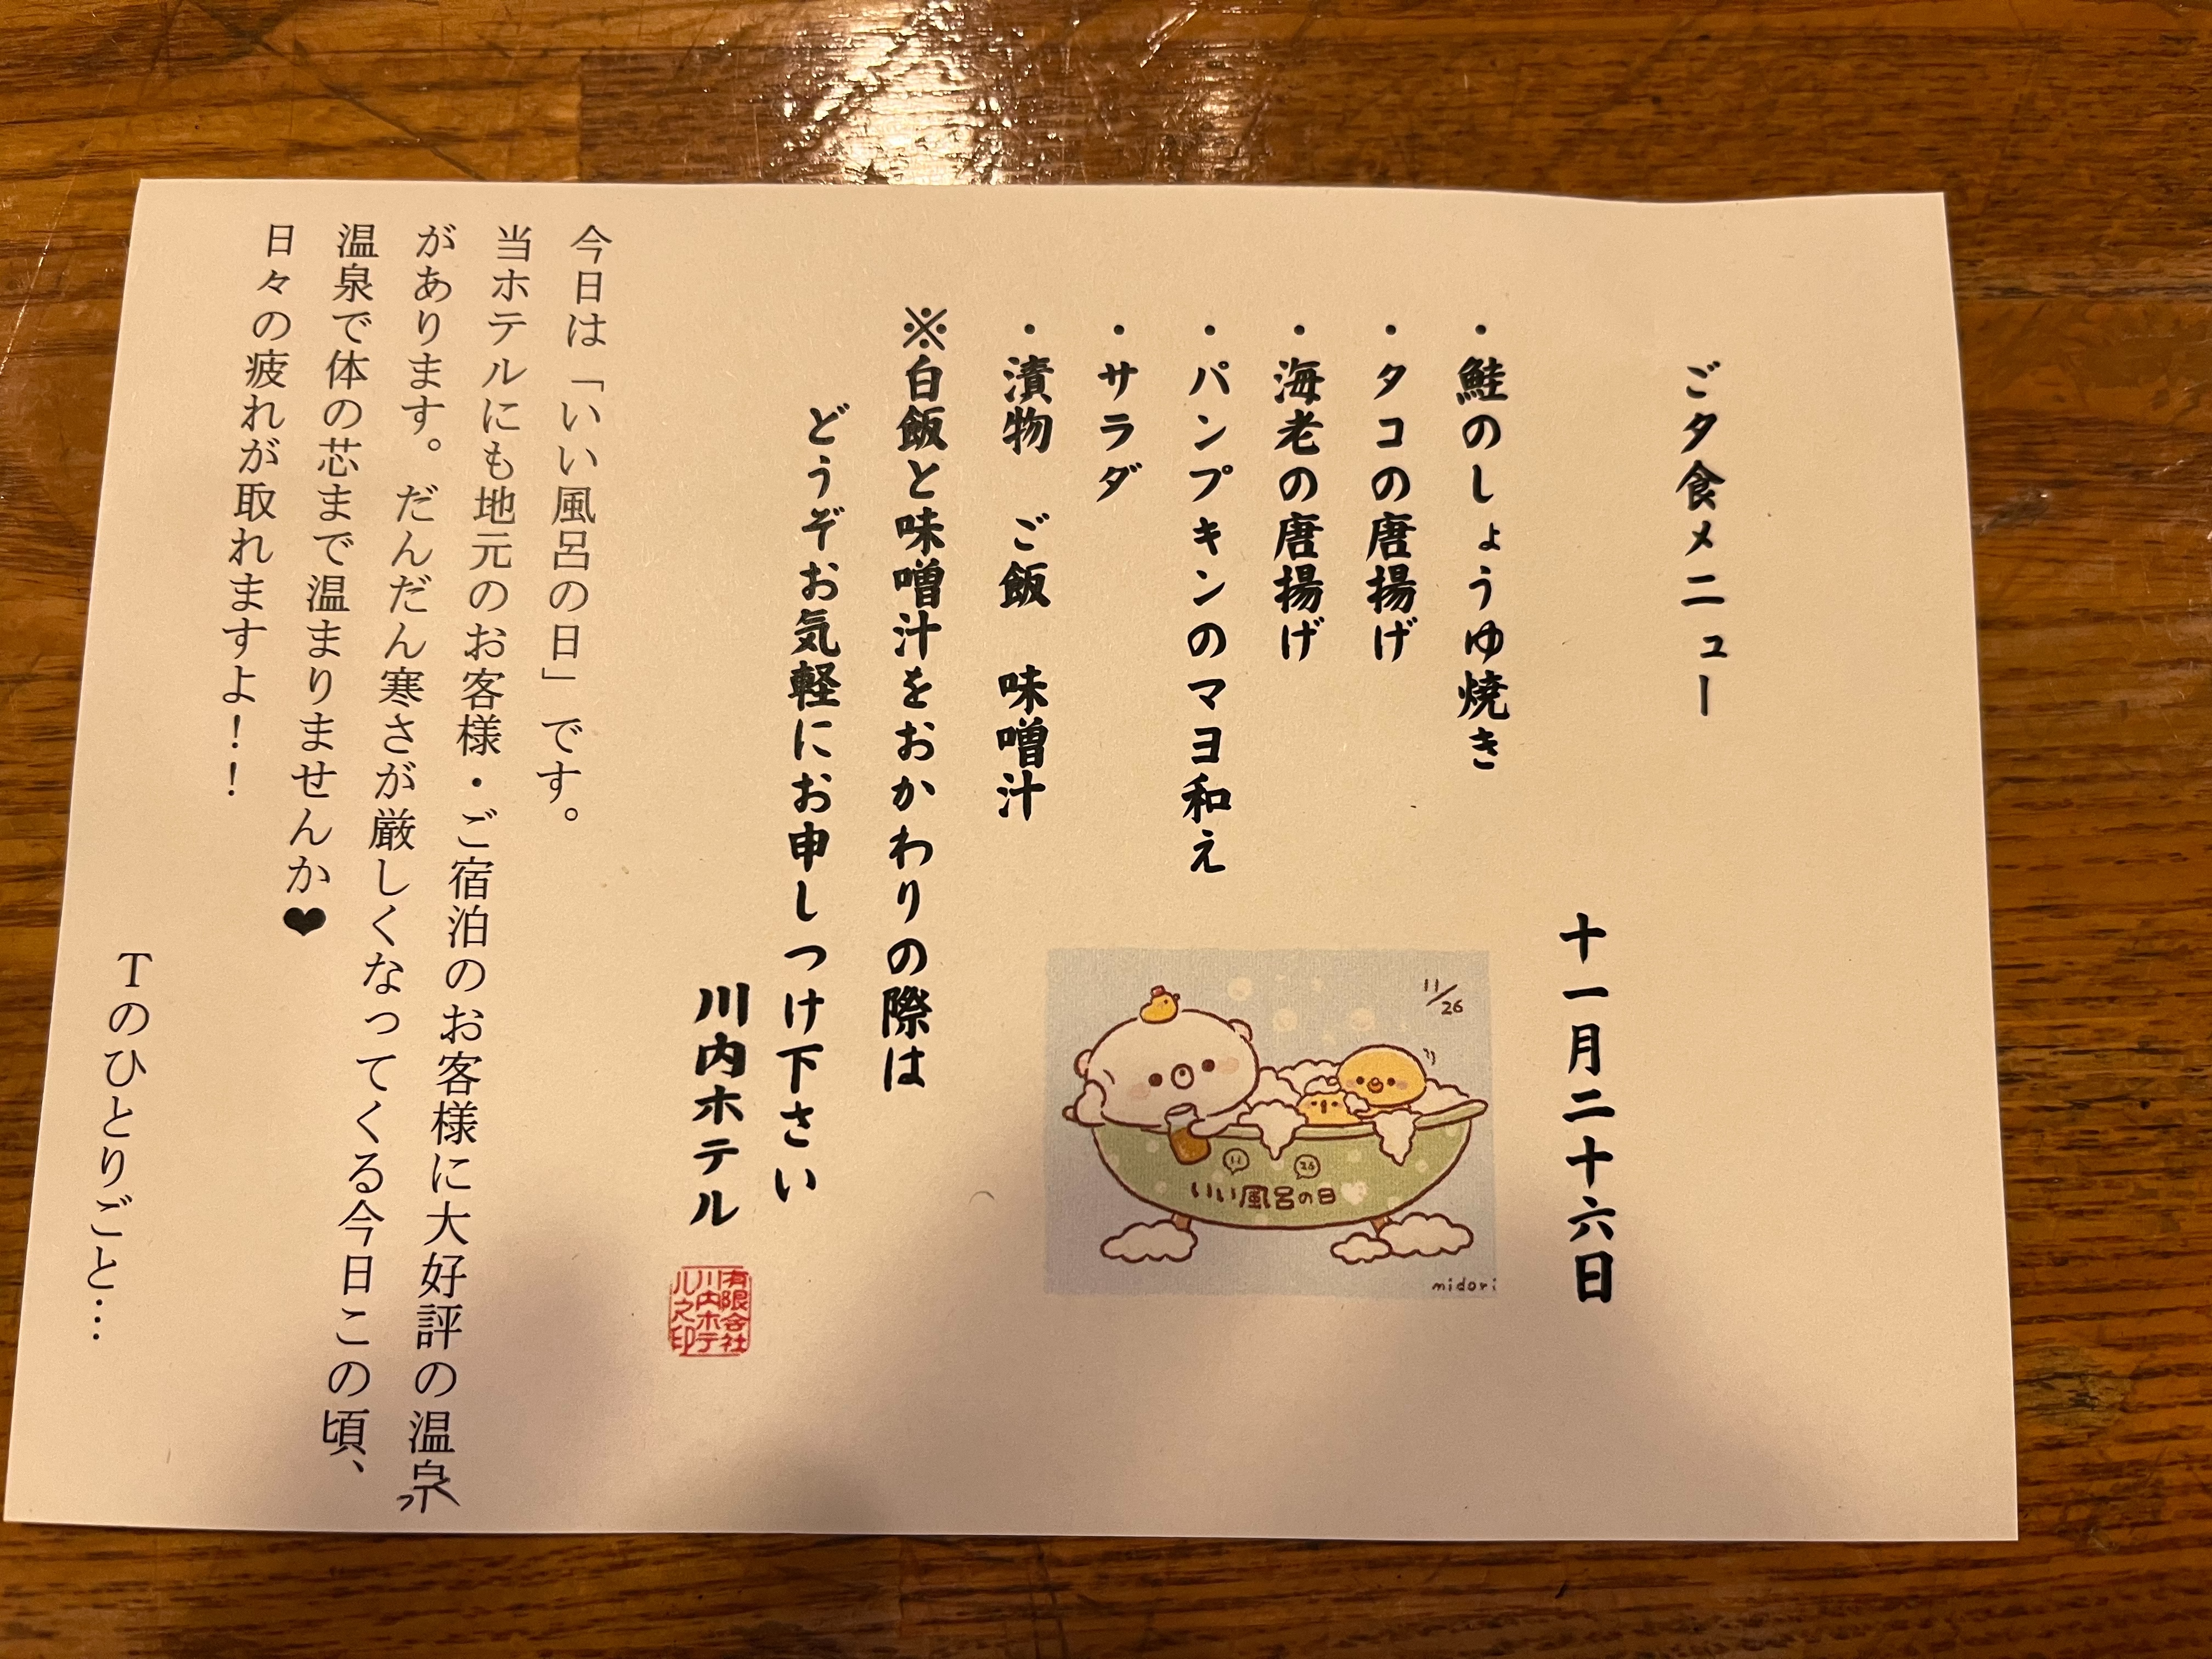 ご夕食メニュー
十一月二十六日
・鮭のしょうゆ焼き
・タコの唐揚げ
・海老の唐揚げ
・パンプキンのマヨ和え
・サラダ
・漬物　ご飯　味噌汁
※白飯と味噌汁をおかわりの際は
どうぞお気軽にお申しつけ下さい
川内ホテル
有限会社
川内ホテ
ル之印
11/26
11 26
いい風呂の日
midori
今日は「いい風呂の日」です。
当ホテルにも地元のお客様・ご宿泊のお客様に大好評の温泉
があります。だんだん寒さが厳しくなってくる今日この頃、
温泉で体の芯まで温まりませんか❤
日々の疲れが取れますよ！！
Tのひとりごと…